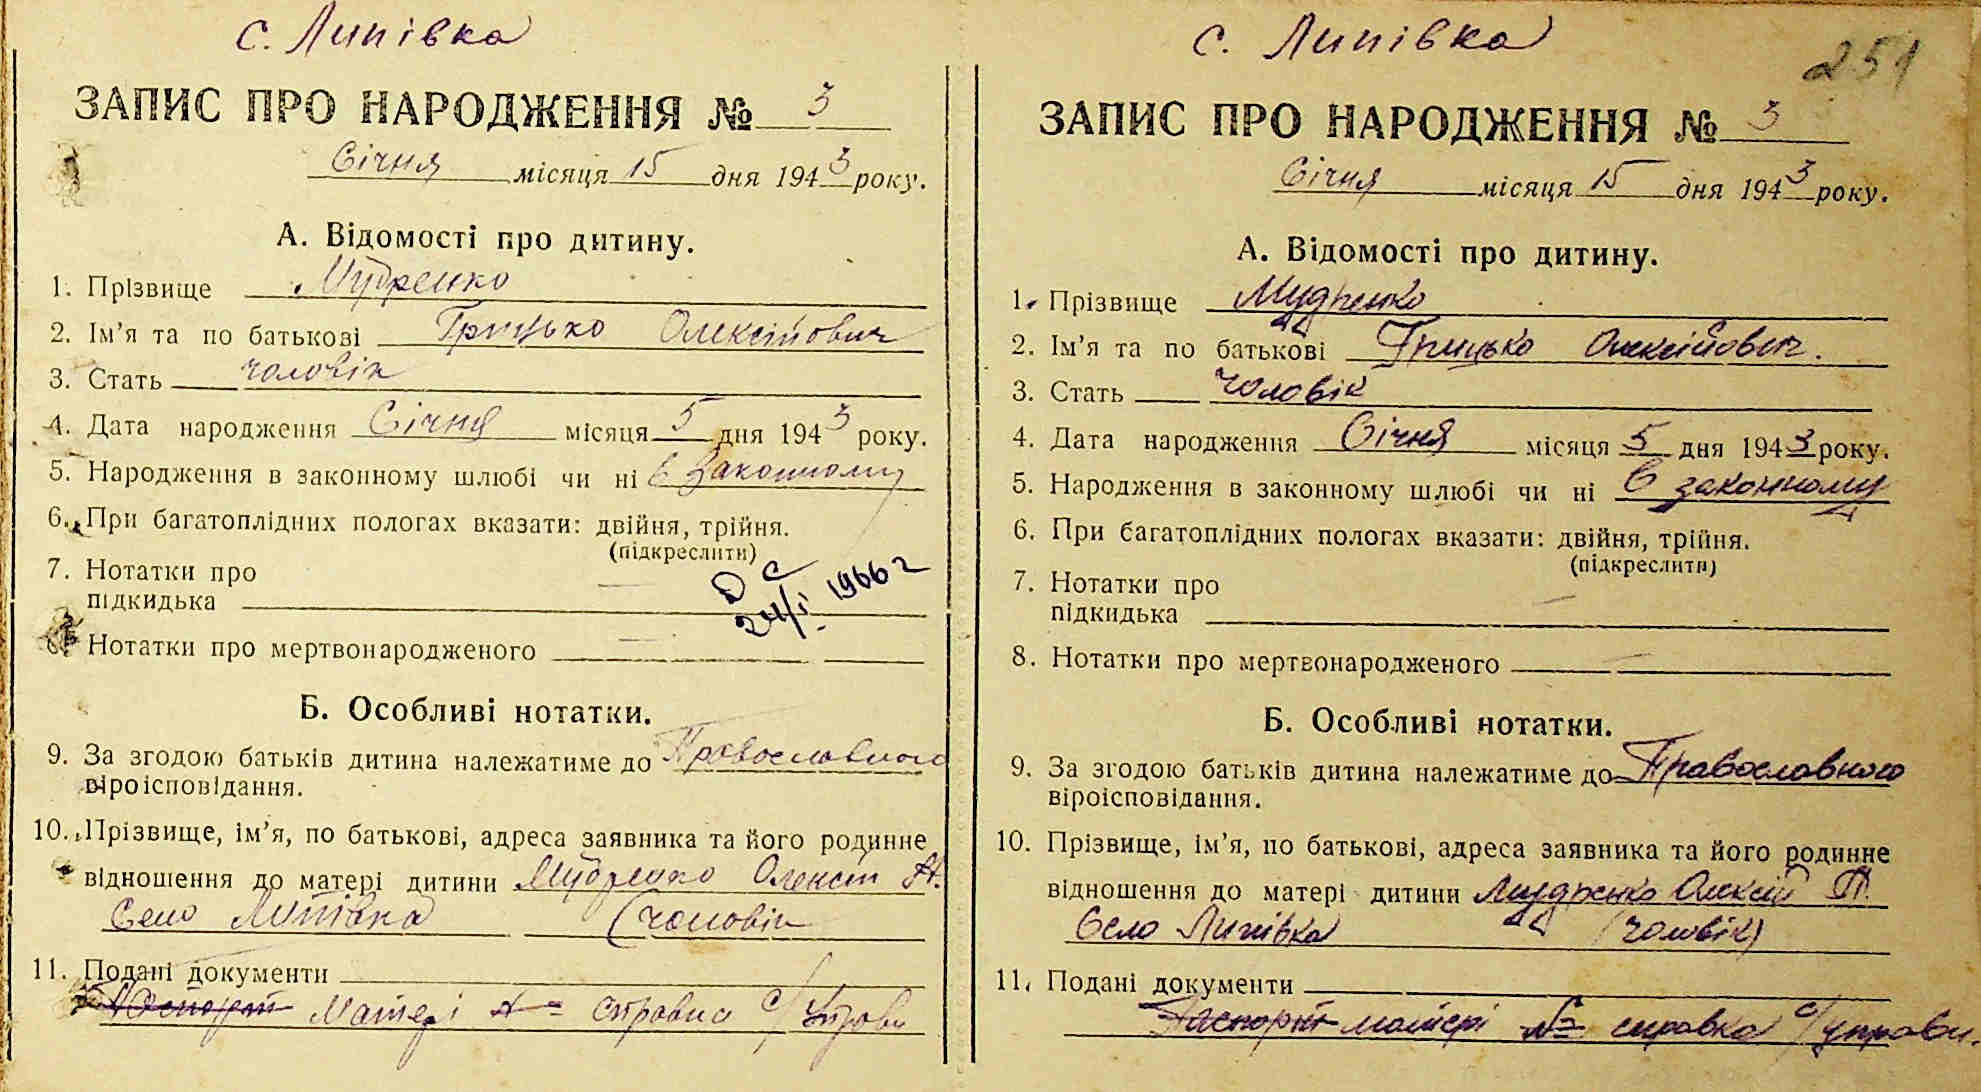 с. Липівка
ЗАПИС ПРО НАРОДЖЕННЯ № 3
Січня місяця 15 дня 1943 року.
А. Відомості про дитину.
1. Прізвище Мудренко
2. Ім'я та по батькові Грицько Олексійович
3. Стать чоловік
4. Дата народження Січня місяця 5 дня 1943 року.
5. Народження в законному шлюбі чи ні в законному
6. При багатоплідних пологах вказати: двійня, трійня.
(підкреслити)
7. Нотатки про
підкидька
24/I 1966 г
Нотатки про мертвонародженого
Б. Особливі нотатки.
9. За згодою батьків дитина належатиме до Православного
віроісповідання.
10. Прізвище, ім'я, по батькові, адреса заявника та його родинне
відношення до матері дитини Мудренко Олексій
Село Липівка (чоловік
11. Подані документи
Паспорт матері № справка с/управи
с. Липівка
251
ЗАПИС ПРО НАРОДЖЕННЯ № 3
Січня місяця 15 дня 1943 року.
А. Відомості про дитину.
1. Прізвище Мудренко
2. Ім'я та по батькові Грицько Олексійович.
3. Стать чоловік
4. Дата народження Січня місяця 5 дня 1943 року.
5. Народження в законному шлюбі чи ні в законному
6. При багатоплідних пологах вказати: двійня, трійня.
(підкреслити)
7. Нотатки про
підкидька —
8. Нотатки про мертвонародженого —
Б. Особливі нотатки.
9. За згодою батьків дитина належатиме до Православного
віроісповідання.
10. Прізвище, ім'я, по батькові, адреса заявника та його родинне
відношення до матері дитини Мудренко Олексій П.
Село Липівка (чоловік)
11. Подані документи
Паспорт матері № справка с/управи.